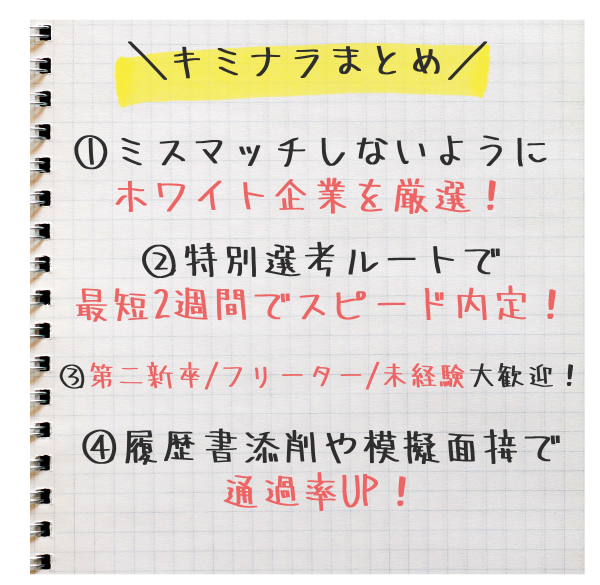 ＼キミナラまとめ／
①ミスマッチしないように
ホワイト企業を厳選！
②特別選考ルートで
最短2週間でスピード内定！
③第二新卒/フリーター/未経験大歓迎！
④履歴書添削や模擬面接で
通過率UP！